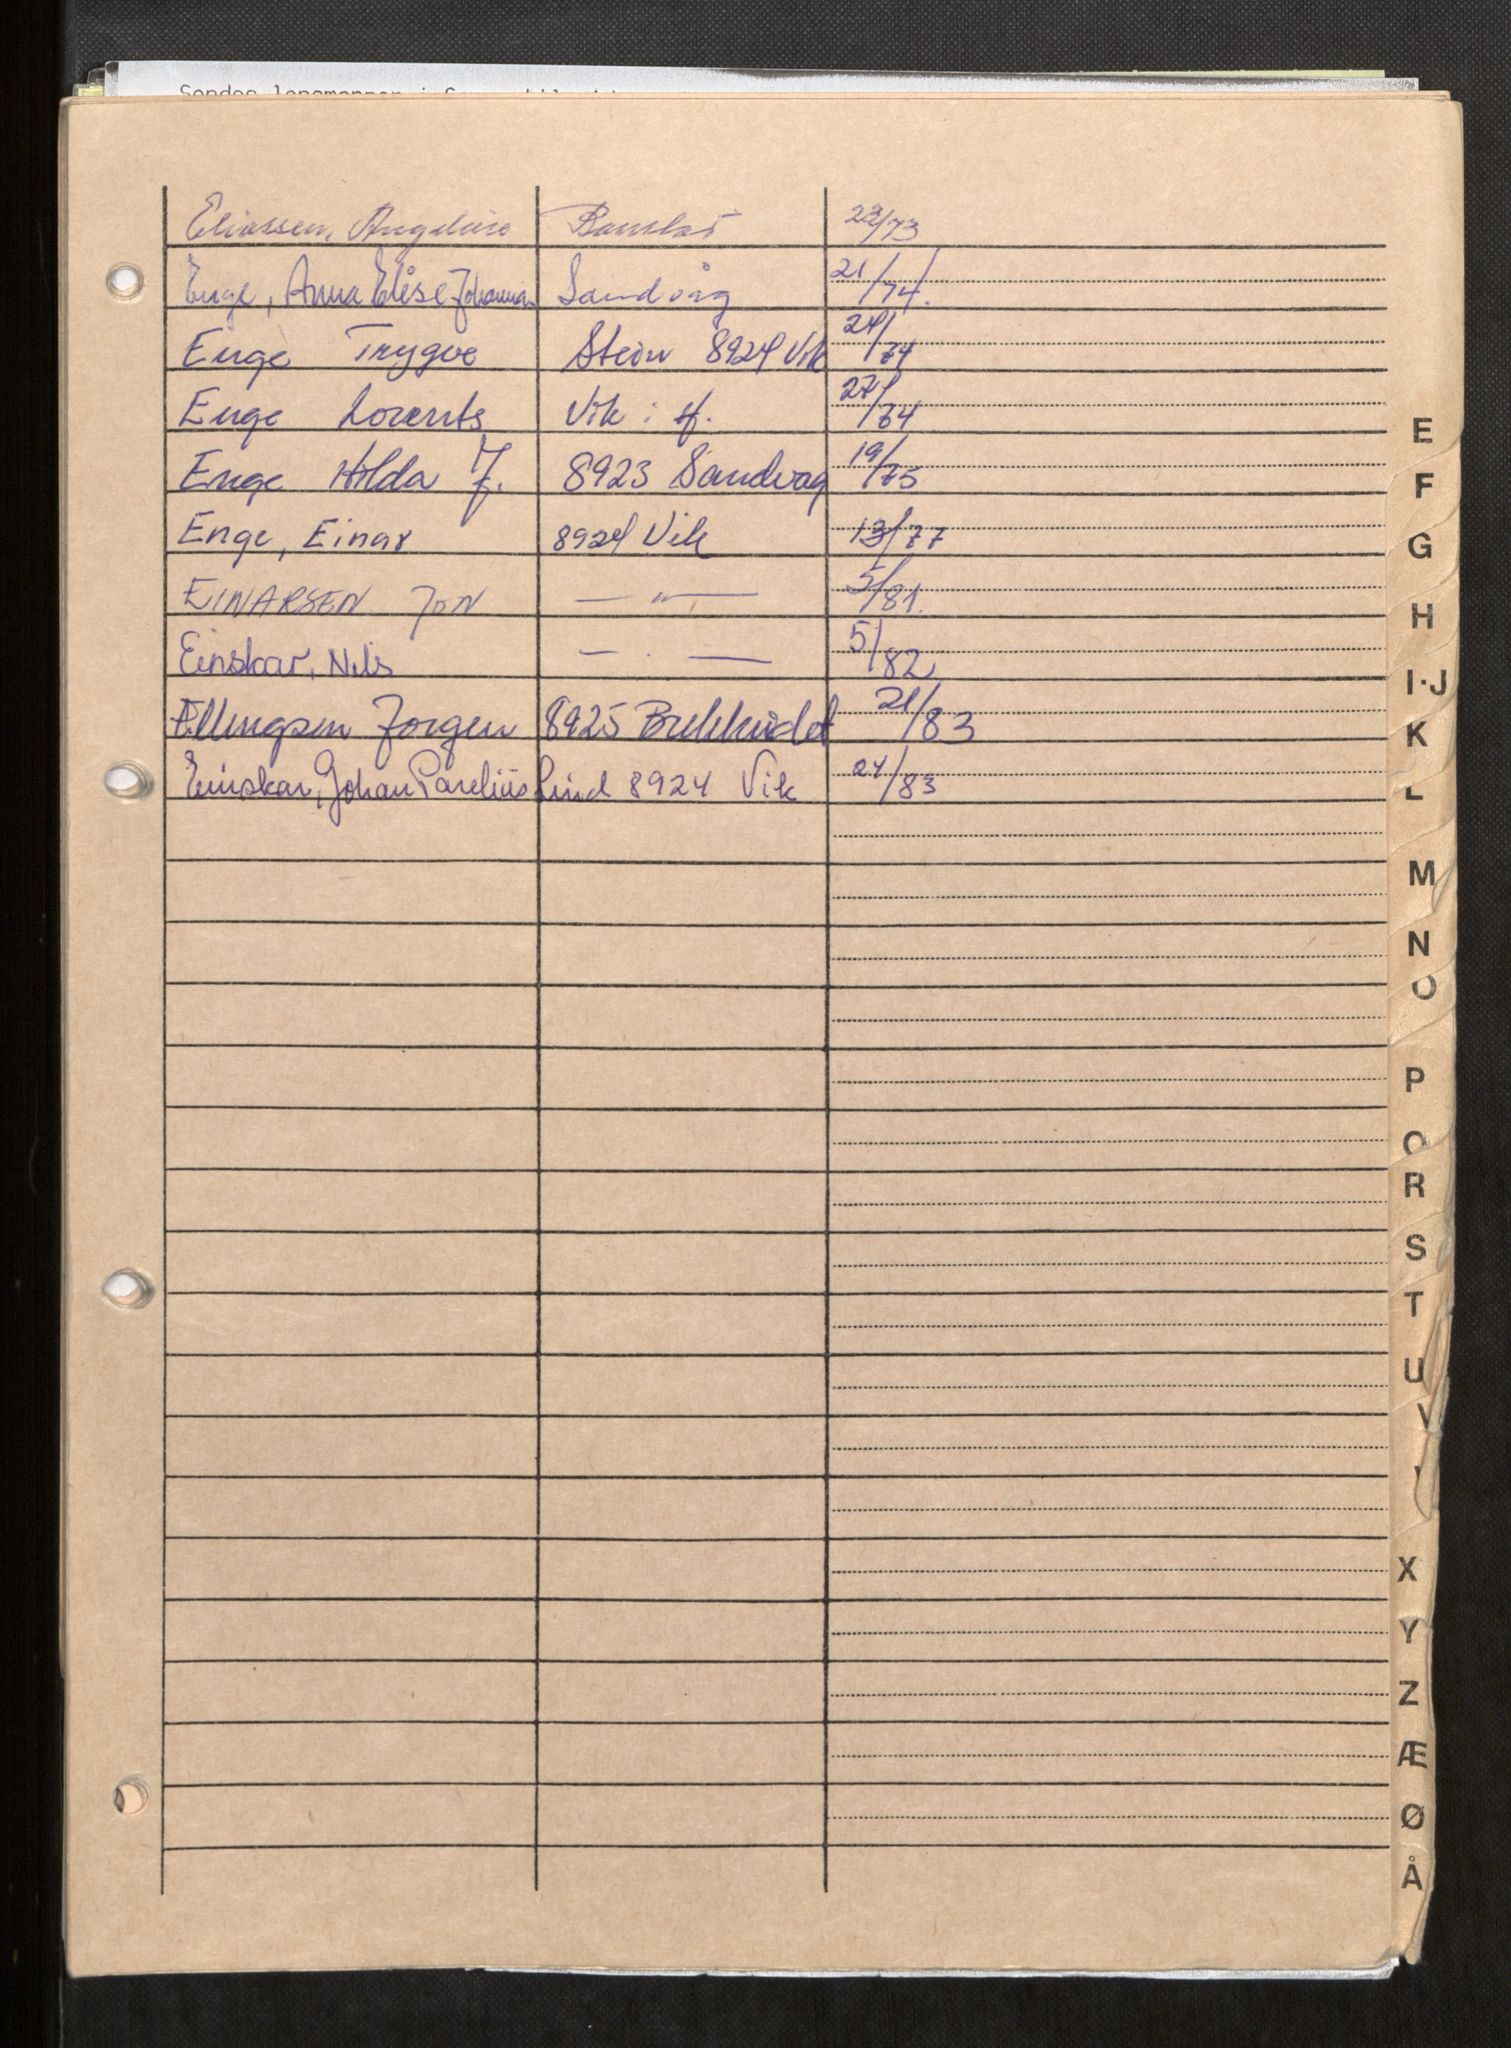 Eliassen, Angeline 23/73
Enge, Anna Elise Johanna Sandvåg 21/74.
Enge Trygve Stein 8924 Vik 24/74
Enge Lorents Vik i H. 27/74
Enge Hilda J. 8923 Sandvåg 19/75
Enge, Einar 8924 Vik 13/77
EINARSEN JON — " — 5/81.
Einskar, Nils — . — 5/82
Ellingsen Jorgen 8925 21/83
Einskar, Johan Parelius Lind 8924 Vik 24/83
E
F
G
H
I·J
K
L
M
N
O
P
Q
R
S
T
U
V
X
Y
Z
Æ
Ø
Å